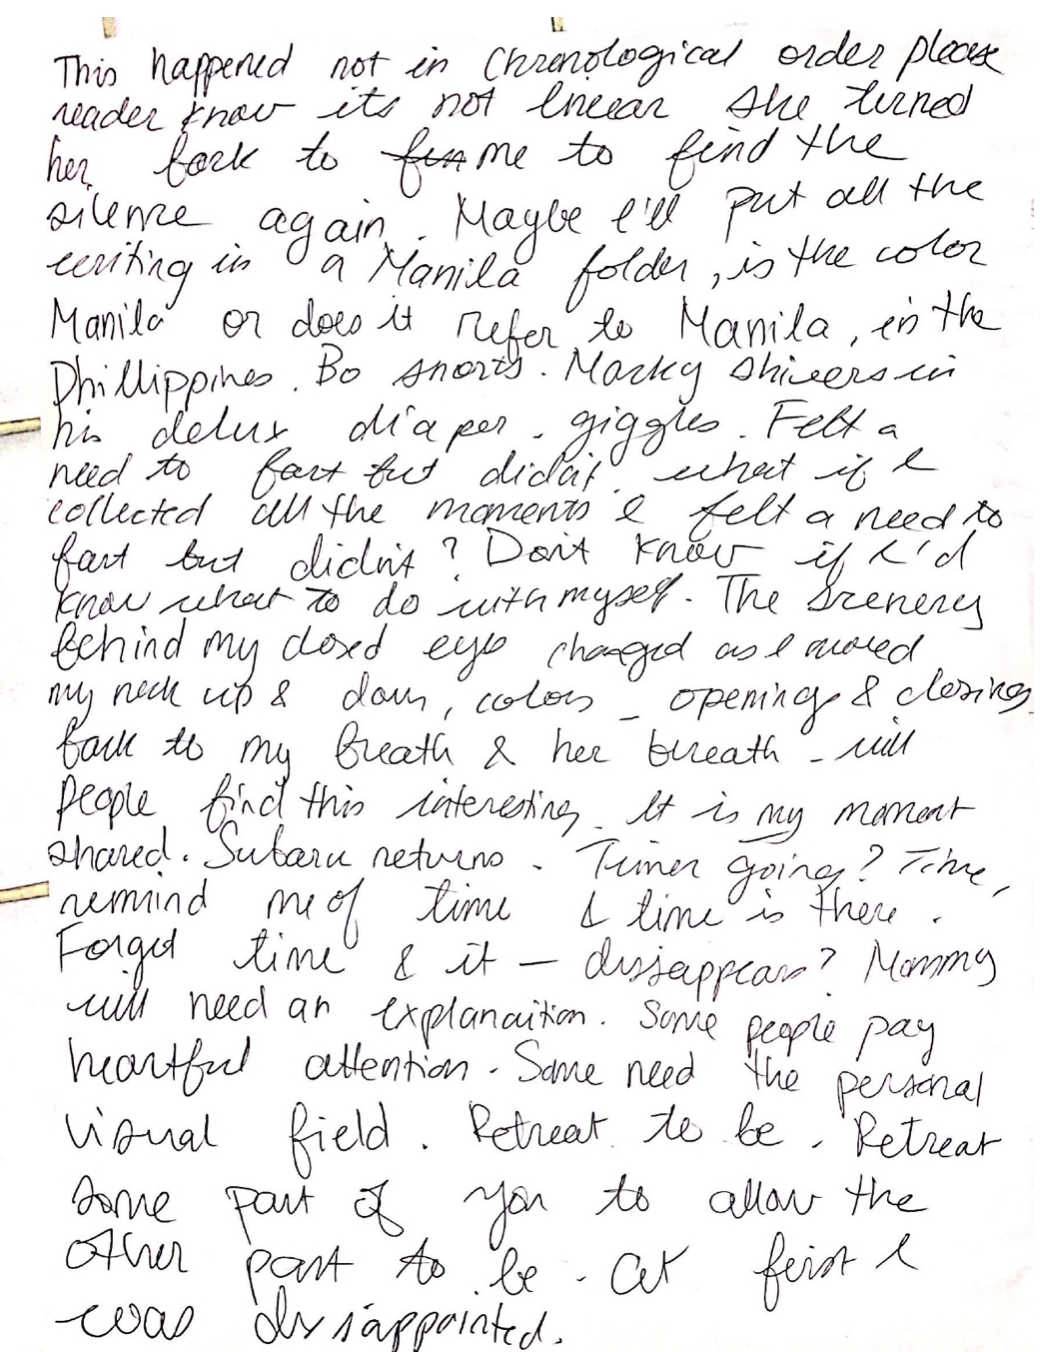 This happened not in Chronological order please
reader know its not linear she turned
her back to me to find the
silence again. Maybe I'll put all the
writing in a Manila folder, is the color
Manila or does it refer to Manila, in the
Phillippines. Bo snorts. Macky shivers in
his delux diaper. giggles. Felt a
need to fart but didn't. what if I
collected all the moments I felt a need to
fart but didn't? Don't know if I'd
know what to do with myself. The scenery
behind my closed eyes changed as I moved
my neck up & down, colors _ opening & closing
back to my breath & her breath - will
people find this interesting. It is my moment
shared. Subaru returns. Timer going? Time,
remind me of time & time is there.
Forget time & it — dissappears? Mommy
will need an explanaition. Some people pay
heartful attention. Some need the personal
visual field. Retreat to be. Retreat
some part of you to allow the
other part to be. At first I
was dissappointed.